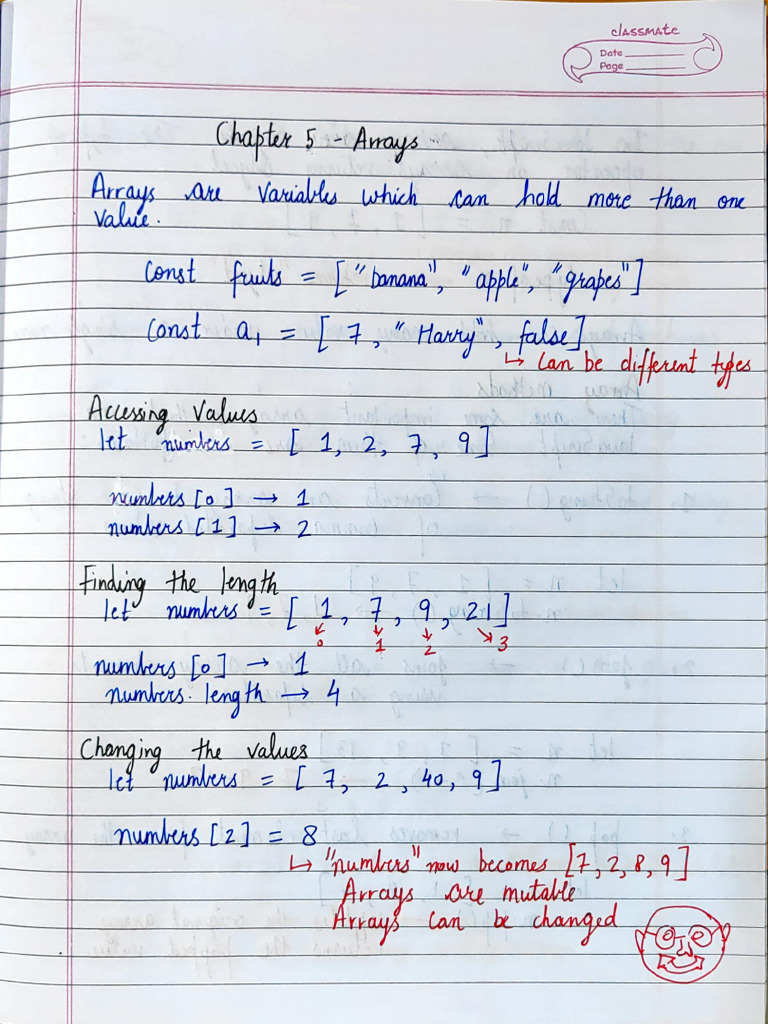 classmate
Date
Page
Chapter 5 - Arrays
Arrays are variables which can hold more than one
value.
const fruits = ["banana", "apple", "grapes"]
const a1 = [7, "Harry", false]
↳ can be different types
Accessing values
let numbers = [1, 2, 7, 9]
numbers[0] → 1
numbers[1] → 2
Finding the length
let numbers = [1, 7, 9, 21]
0 1 2 3
numbers[0] → 1
numbers.length → 4
Changing the values
let numbers = [7, 2, 40, 9]
numbers[2] = 8
↳ "numbers" now becomes [7, 2, 8, 9]
Arrays are mutable
Arrays can be changed